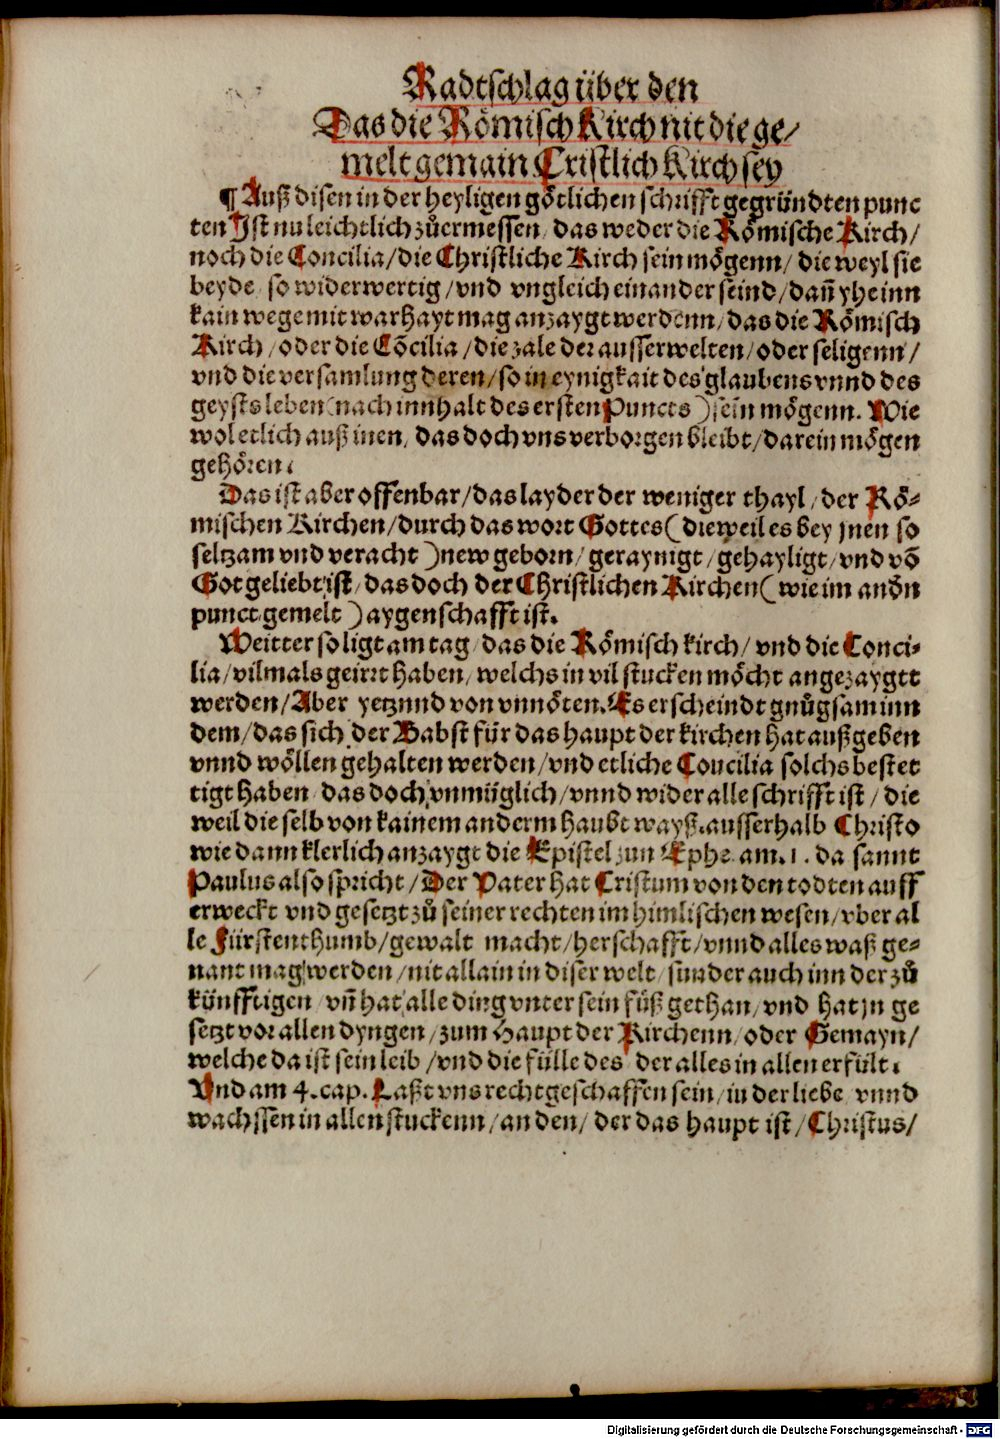 Radtschlag über den
Das die Römisch Kirch nit die ge/
melt gemain Cristlich Kirch sey
¶ Auß disen in der heyligen götlichen schrifft gegründten punc
ten Jst nu leichtlich zůermessen/ das weder die Römische Kirch/
noch die Concilia/ die Christliche Kirch sein mögenn/ die weyl sie
beyde/ so widerwertig/ vnd vngleich einander seind/ dañ yhe inn
kain wege mit warhayt mag anzaygt werdenn/ das die Römisch
Kirch/ oder die Cõcilia/ die zale der ausserwelten/ oder seligenn/
vnd die versamlung deren/ so in eynigkait des glaubens vnnd des
geysts leben (nach innhalt des ersten Puncts) sein mögenn. Wie
wol etlich auß inen/ das doch vns verborgen bleibt/ darein mögen
gehören.
Das ist aber offenbar/ das layder der weniger thayl/ der Rö-
mischen Kirchen/ durch das wort Gottes (dieweil es bey jnen so
seltzam vnd veracht) new geborn/ geraynigt/ gehayligt/ vnd võ
Got geliebt ist/ das doch der Christlichen Kirchen (wie im andn
punct gemelt) aygenschafft ist.
Weitter so ligt am tag/ das die Römisch kirch/ vnd die Conci-
lia/ vilmals geirrt haben/ welchs in vil stucken möcht angezaygtt
werden/ Aber yetznnd von vnnöten. Es erscheindt gnůgsam inn
dem/ das sich der Babst für das haupt der kirchen hat außgeben
vnnd wöllen gehalten werden/ vnd etliche Concilia solchs bestet
tigt haben/ das doch vnmüglich/ vnnd wider alle schrifft ist/ die
weil die selb von kainem anderm haubt wayß. ausserhalb Christo
wie dann klerlich anzaygt die Epistel zun Ephe. am. 1. da sannt
Paulus also spricht/ Der Vater hat Cristum von den todten auff
erweckt vnd gesetzt zů seiner rechten im himlischen wesen/ vber al
le Fürstenthumb/ gewalt macht/ herschafft/ vnnd alles waß ge-
nant mag werden/ nit allain in diser welt/ sunder auch inn der zů
künfftigen/ vñ hat alle ding vnter sein füß gethan/ vnd hat jn ge
setzt vor allen dyngen/ zum Haupt der Kirchenn/ oder Gemayn/
welche da ist sein leib/ vnd die fülle des/ der alles in allen erfült.
Vnd am 4. cap. Laßt vns rechtgeschaffen sein/ in der liebe/ vnnd
wachssen in allen stuckenn/ an den/ der das haupt ist/ Christus/
Digitalisierung gefördert durch die Deutsche Forschungsgemeinschaft - DFG